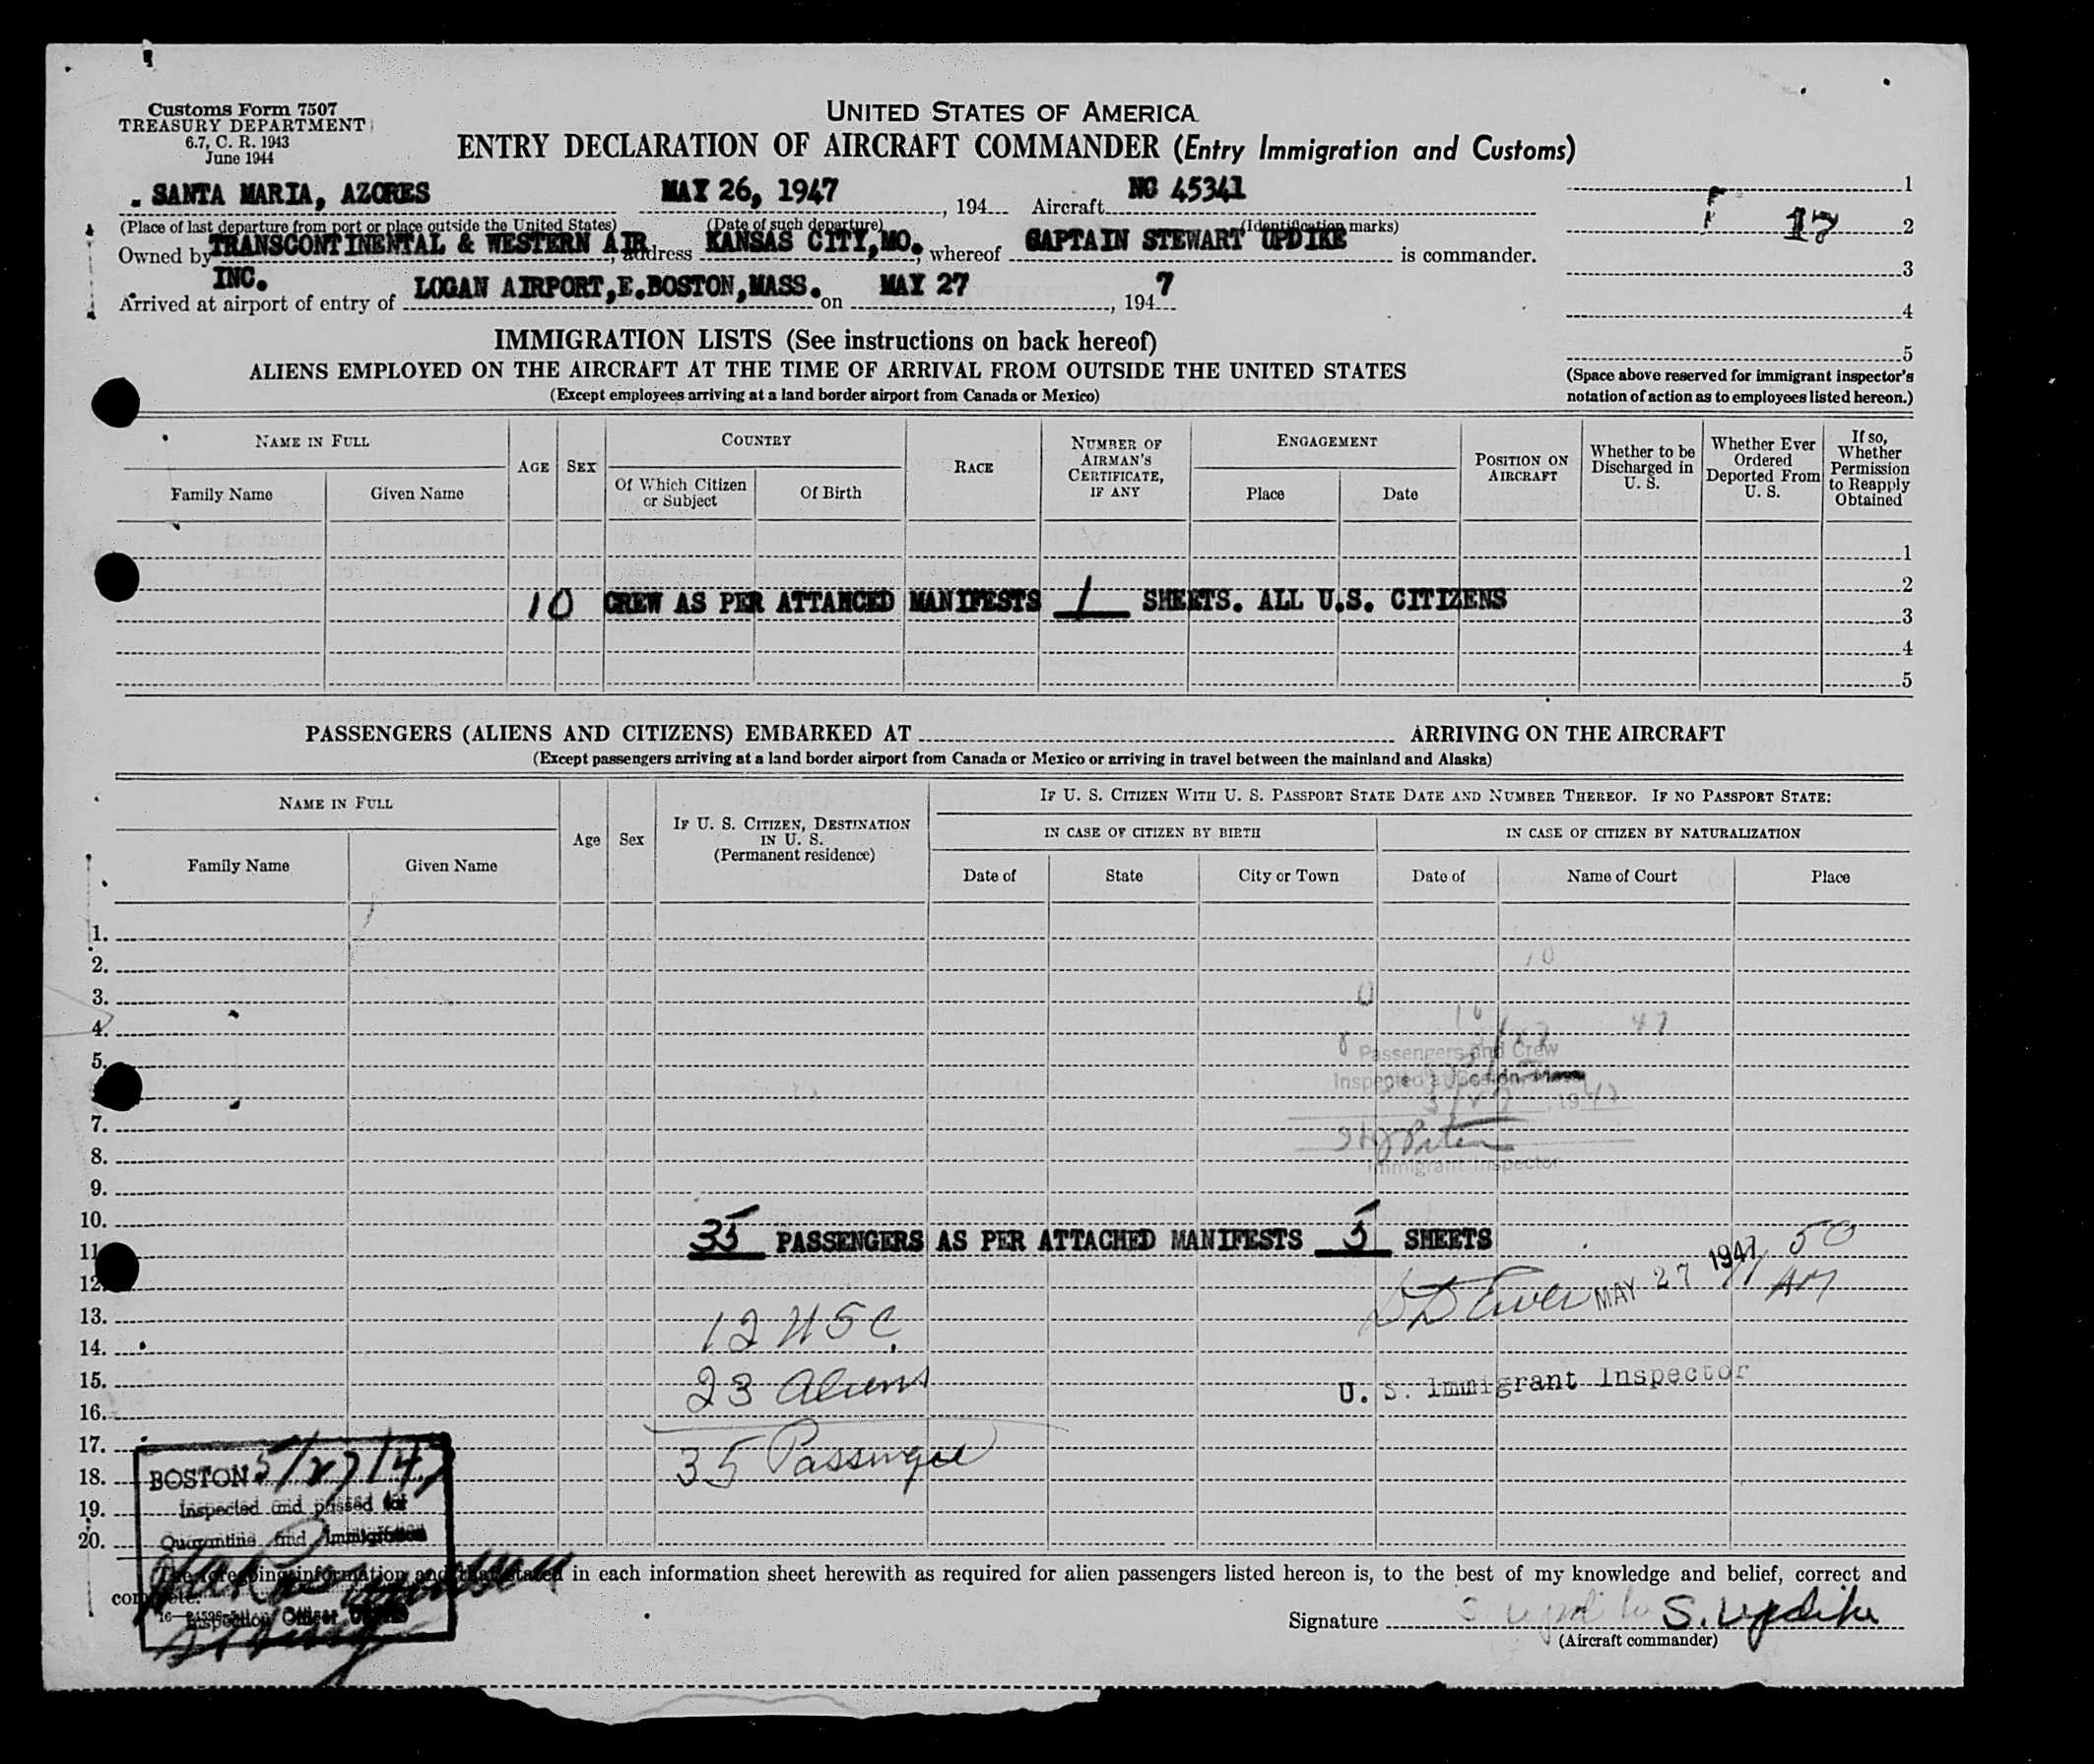 Customs Form 7507
TREASURY DEPARTMENT
6.7, C. R. 1943
June 1944
UNITED STATES OF AMERICA
ENTRY DECLARATION OF AIRCRAFT COMMANDER (Entry Immigration and Customs)
SANTA MARIA, AZORES MAY 26, 1947, 194 Aircraft NC 45341
(Place of last departure from port or place outside the United States) (Date of such departure) (Identification marks)
Owned by TRANSCONTINENTAL & WESTERN AIR, address KANSAS CITY, MO., whereof CAPTAIN STEWART UPDIKE is commander.
INC.
Arrived at airport of entry of LOGAN AIRPORT, E. BOSTON, MASS. on MAY 27, 1947
1
2
3
4
5
(Space above reserved for immigrant inspector's
notation of action as to employees listed hereon.)
IMMIGRATION LISTS (See instructions on back hereof)
ALIENS EMPLOYED ON THE AIRCRAFT AT THE TIME OF ARRIVAL FROM OUTSIDE THE UNITED STATES
(Except employees arriving at a land border airport from Canada or Mexico)
NAME IN FULL
Family Name
Given Name
AGE
SEX
COUNTRY
Of Which Citizen
or Subject
Of Birth
RACE
NUMBER OF
AIRMAN'S
CERTIFICATE,
IF ANY
ENGAGEMENT
Place
Date
POSITION ON
AIRCRAFT
Whether to be
Discharged in
U. S.
Whether Ever
Ordered
Deported From
U. S.
If so,
Whether
Permission
to Reapply
Obtained
1
2
10 CREW AS PER ATTAHCED MANIFESTS 1 SHEETS. ALL U.S. CITIZENS
3
4
5
PASSENGERS (ALIENS AND CITIZENS) EMBARKED AT ARRIVING ON THE AIRCRAFT
(Except passengers arriving at a land border airport from Canada or Mexico or arriving in travel between the mainland and Alaska)
NAME IN FULL
Family Name
Given Name
Age
Sex
IF U. S. CITIZEN, DESTINATION
IN U. S.
(Permanent residence)
IF U. S. CITIZEN WITH U. S. PASSPORT STATE DATE AND NUMBER THEREOF. IF NO PASSPORT STATE:
IN CASE OF CITIZEN BY BIRTH
IN CASE OF CITIZEN BY NATURALIZATION
Date of
State
City or Town
Date of
Name of Court
Place
1.
2.
3.
4.
5.
Passengers and Crew
Inspected at Boston
7.
8.
Immigrant Inspector
9.
10.
35 PASSENGERS AS PER ATTACHED MANIFESTS 5 SHEETS
11
MAY 27 1947
50 AM
12.
13.
12 USC
14.
15.
23 Aliens
U. S. Immigrant Inspector
16.
17.
35 Passenger
18.
BOSTON 5/27/47
19.
Inspected and passed for
20.
Quarantine and Immigration
The foregoing information and that stated in each information sheet herewith as required for alien passengers listed hereon is, to the best of my knowledge and belief, correct and
complete.
Signature S. Updike S. Updike
(Aircraft commander)